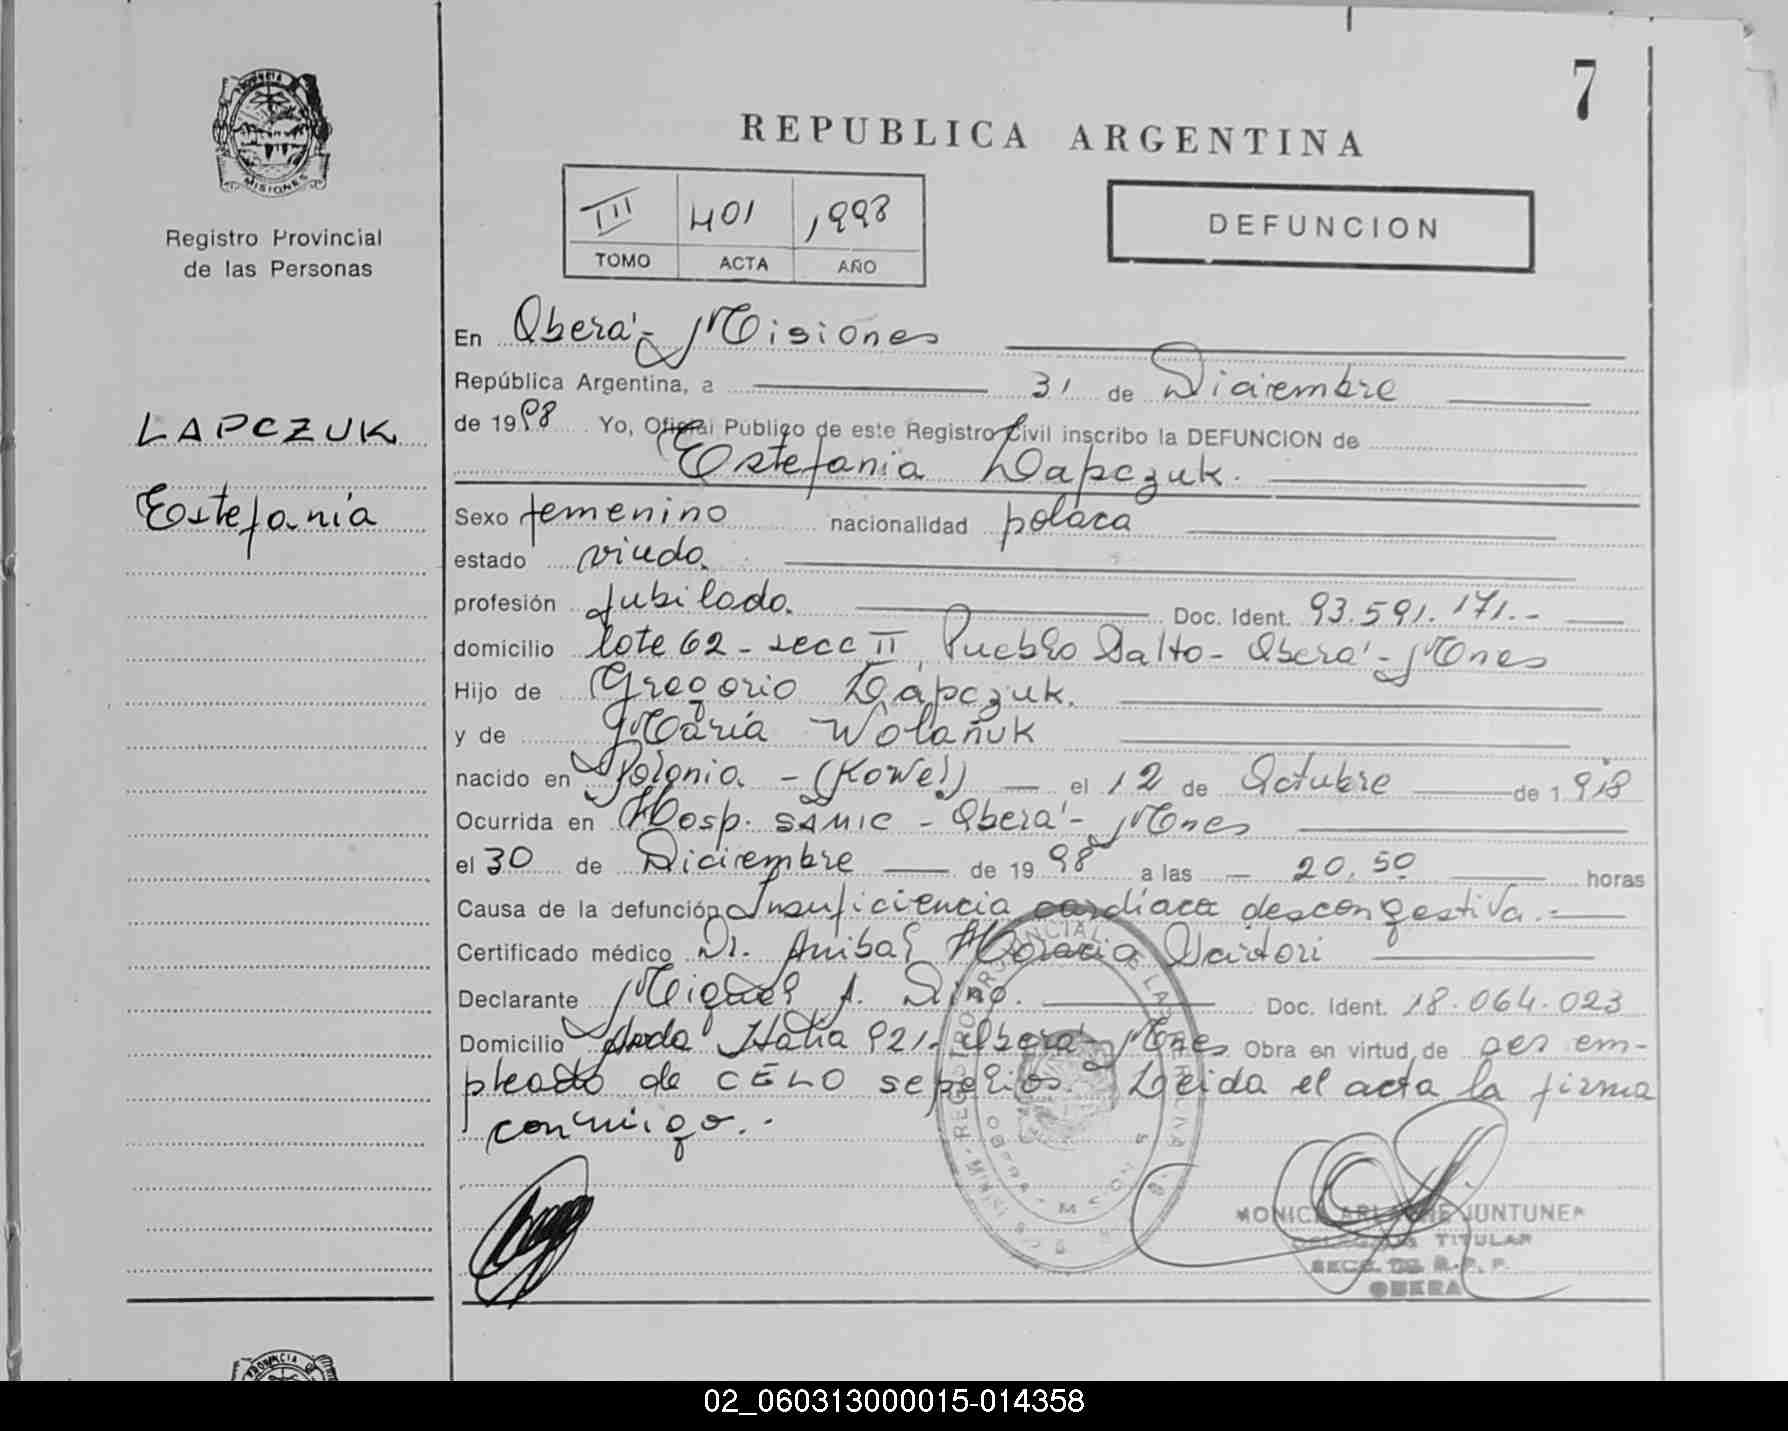 7
REPUBLICA ARGENTINA
PROVINCIA DE
MISIONES
Registro Provincial
de las Personas
III 401 1998
TOMO ACTA AÑO
DEFUNCION
LAPCZUK
Estefania
En Oberá - Misiones
República Argentina, a 31 de Diciembre
de 1998 Yo, Oficial Público de este Registro Civil inscribo la DEFUNCION de
Estefania Lapczuk.
Sexo femenino nacionalidad polaca
estado viuda.
profesión Jubilada. Doc. Ident. 93.591.171.-
domicilio lote 62 - secc II, Pueblo Salto - Oberá - Mnes
Hijo de Gregorio Lapczuk.
y de María Wolañuk
nacido en Polonia - (Kowel) el 12 de Octubre de 1.918
Ocurrida en Hosp. SAMIC - Oberá - Mnes
el 30 de Diciembre de 1998 a las - 20,50 horas
Causa de la defunción Insuficiencia cardíaca descongestiva.-
Certificado médico Dr. Anibal Horacio Sartori
Declarante Miguel A. Doc. Ident. 18.064.023
Domicilio Avda Italia 921. Oberá - Mnes Obra en virtud de ser em-
pleado de CELO sepelios. Leida el acta la firma
conmigo.-
MONICA JUNTUNEN
DELEGADA TITULAR
SECC. DE R.P.P.
OBERA
PROVINCIA DE
02_060313000015-014358